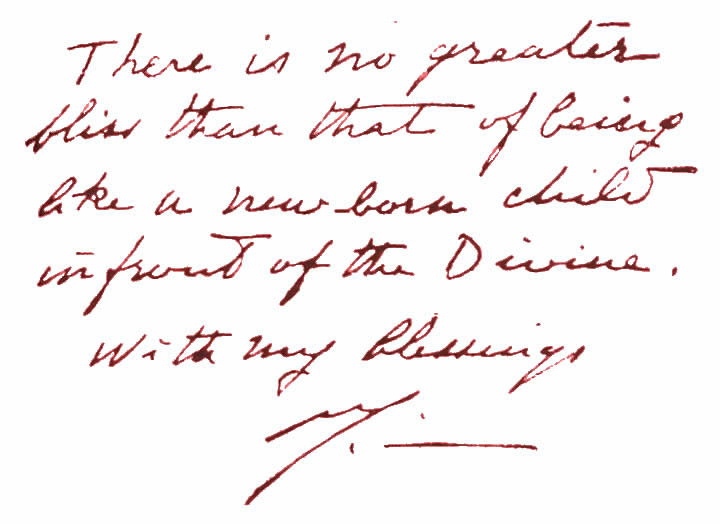 There is no greater
bliss than that of being
like a new born child
infront of the Divine.
With my blessings